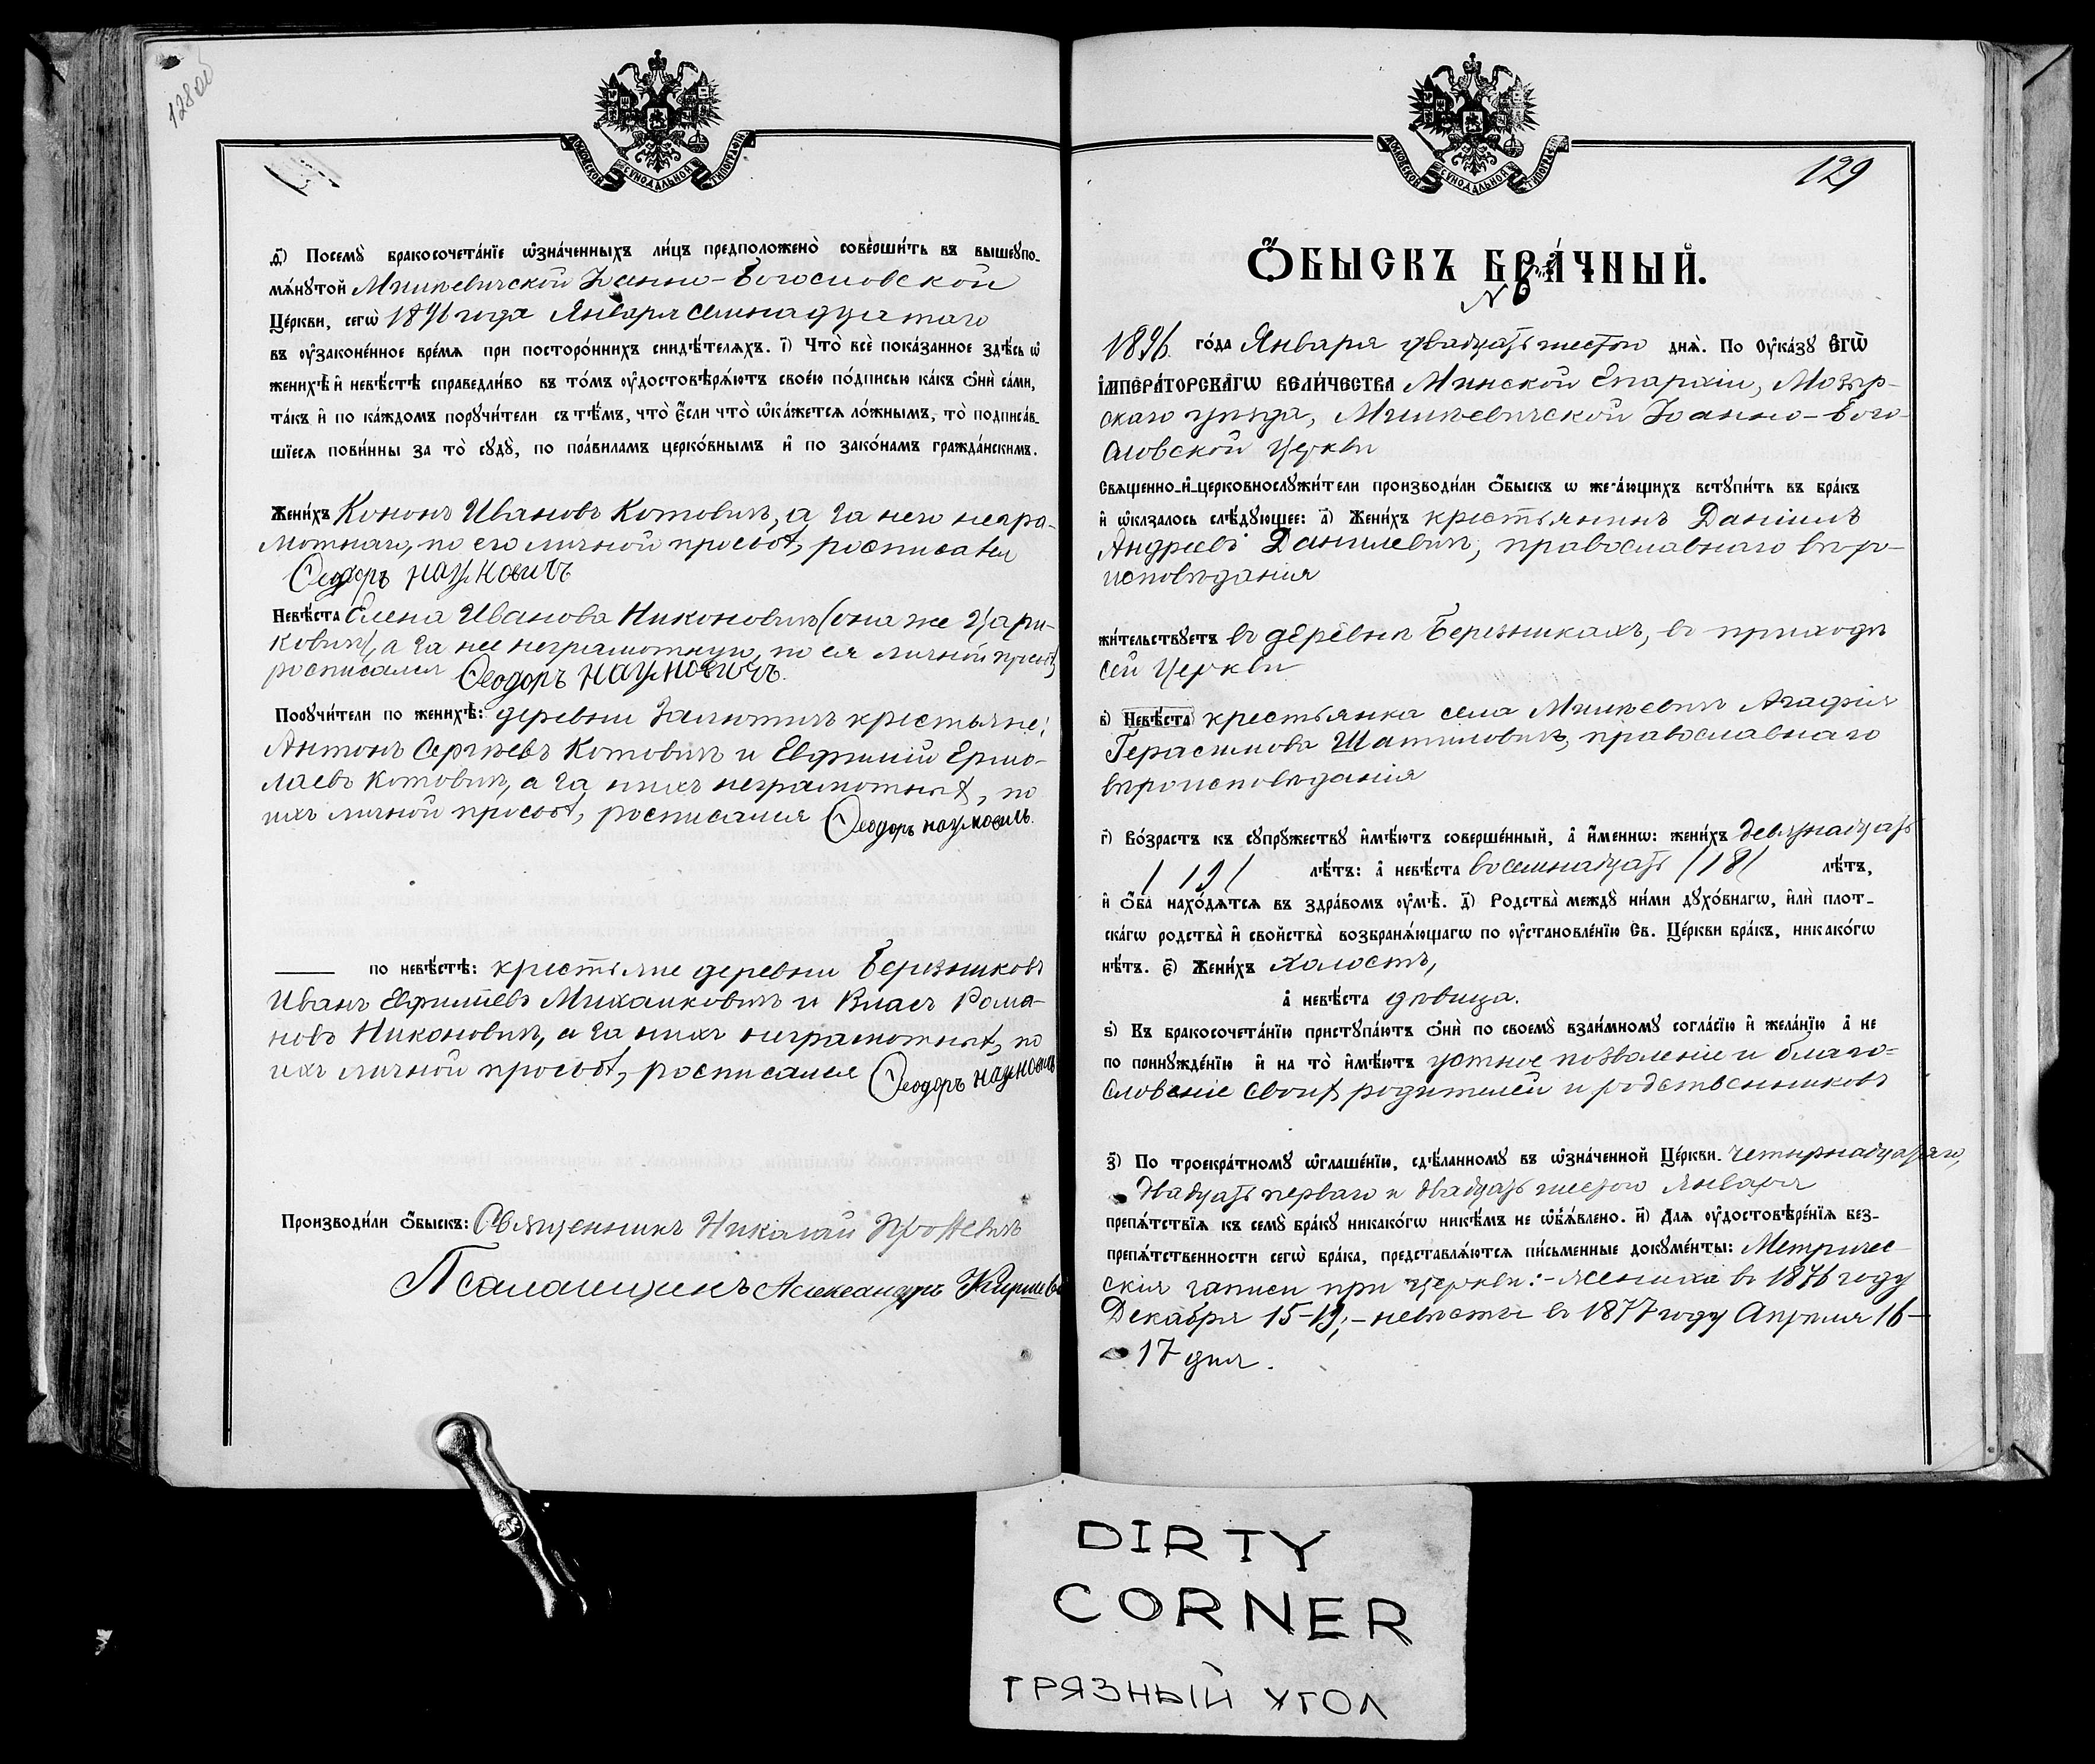 128 об
МОСКОВСКОЙ СѴНОДАЛЬНОЙ ТИПОГРАФІИ
ѳ҃) Посемꙋ̀ бракосочета́нїе ѡ҆зна́ченныхъ ли́цъ предположено̀ соверши́ть въ вышеꙋпо-
мѧ́нꙋтой Мишевичской Іоанно-Богословской
Це́ркви, сегѡ̀ 1896 года Января семнадцатаго
въ ᲂу҆зако́ненное вре́мѧ при посторо́ннихъ свидѣ́телѧхъ. і҃) Что̀ всѐ пока́занное здѣ́сь ѡ҆
женихѣ̀ и҆ невѣ́стѣ справедли́во въ то́мъ ᲂу҆достовѣрѧ́ютъ свое́ю по́дписью ка́къ ѻ҆нѝ са́ми,
та́къ и҆ по ка́ждомъ порꙋчи́тели съ тѣ́мъ, что̀ є҆́сли что̀ ѡ҆ка́жетсѧ ло́жнымъ, то̀ подписа́в-
шїесѧ пови́нны за то̀ сꙋдꙋ̀, по пра́виламъ церко́внымъ и҆ по зако́намъ гражда́нскимъ.
Жени́хъ Кононъ Ивановъ Котовичъ, а за него негра-
мотнаго, по его личной просьбѣ, росписался
Ѳеодоръ Наумовичъ
Невѣ́ста Елена Иванова Никоновичъ (она же Цари-
ковичъ), а за нее неграмотную, по ея личной просьбѣ,
росписался Ѳеодоръ Наумовичъ.
Порꙋчи́тели по женихѣ̀: деревни Залютичъ крестьяне:
Антонъ Сергѣевъ Котовичъ и Евфимій Ермо-
лаевъ Котовичъ, а за нихъ неграмотныхъ, по
ихъ личной просьбѣ, росписался Ѳеодоръ Наумовичъ.
по невѣ́стѣ: крестьяне деревни Березниковъ
Иванъ Евфимовъ Михалковичъ и Власъ Рома-
новъ Никоновичъ, а за нихъ неграмотныхъ, по
ихъ личной просьбѣ, росписался Ѳеодоръ Наумовичъ
Производи́ли ѻ҆́быскъ: Священникъ Николай
Псаломщикъ Александръ
МОСКОВСКОЙ СѴНОДАЛЬНОЙ ТИПОГРАФІИ
129
Ѻ҆́БЫСКЪ БРА́ЧНЫЙ.
№ 6
1896 го́да Января двадцать шестаго днѧ̀. По ᲂу҆ка́зꙋ Є҆ГѠ̀
І҆МПЕРА́ТОРСКАГѠ ВЕЛИ́ЧЕСТВА Минской Епархіи, Мозыр-
скаго уѣзда, Мишевичской Іоанно-Бого-
словской церкви
Свѧщенно-и҆-церковнослꙋжи́тели производи́ли ѻ҆́быскъ ѡ жела́ющихъ встꙋпи́ть въ бра́къ
и҆ ѡ҆каза́лось слѣ́дꙋющее: а҃) Жени́хъ крестьянинъ Даніилъ
Андреевъ Данилевичъ, православнаго вѣро-
исповѣданія
жи́тельствꙋетъ въ деревнѣ Березникахъ, въ приходѣ
сей церкви
в҃) Невѣ́ста крестьянка села Мишевичъ Агафія
Герасимова Шатиловичъ, православнаго
вѣроисповѣданія
г҃) Во́зрастъ къ сꙋпрꙋ́жествꙋ и҆мѣ́ютъ соверше́нный, а҆ и҆́менно: жени́хъ девятнадцать
/19/ лѣ́тъ: а҆ невѣ́ста восемнадцать /18/ лѣ́тъ,
и҆ ѻ҆́ба нахо́дѧтсѧ въ здра́вомъ ᲂу҆мѣ̀. д҃) Родства̀ междꙋ̀ ни́ми дꙋхо́внагѡ, и҆лѝ плот-
ска́гѡ родства̀ и҆ свойства̀ возбранѧ́ющагѡ по ᲂу҆становле́нїю Св. Це́ркви бра́къ, никако́гѡ
нѣ́тъ. є҃) Жени́хъ холостъ,
а҆ невѣ́ста дѣвица.
ѕ҃) Къ бракосочета́нїю пристꙋпа́ютъ ѻ҆нѝ по своемꙋ̀ взаи́мномꙋ согла́сїю и҆ жела́нїю а҆ не
по принꙋжде́нїю и҆ на то̀ и҆мѣ́ютъ устное позволеніе и благо-
словеніе своихъ родителей и родственниковъ
з҃) По троекра́тномꙋ ѡ҆глаше́нїю, сдѣ́ланномꙋ въ ѡ҆зна́ченной Це́ркви. четырнадцатаго,
двадцать перваго и двадцать шестаго Января
препѧ́тствїѧ къ семꙋ̀ бра́кꙋ никако́гѡ никѣ́мъ не ѡ҆б̾ѧ́влено. и҃) Длѧ̀ ᲂу҆достовѣре́нїѧ без-
препѧ́тственности сегѡ̀ бра́ка, представлѧ́ютсѧ пи́сьменные докꙋме́нты: Метричес-
кія записи при церкви: - жениха въ 1876 году
Декабря 15-19; - невѣсты въ 1877 году Апрѣля 16-
17 дня.
DIRTY
CORNER
ГРЯЗНЫЙ УГОЛ